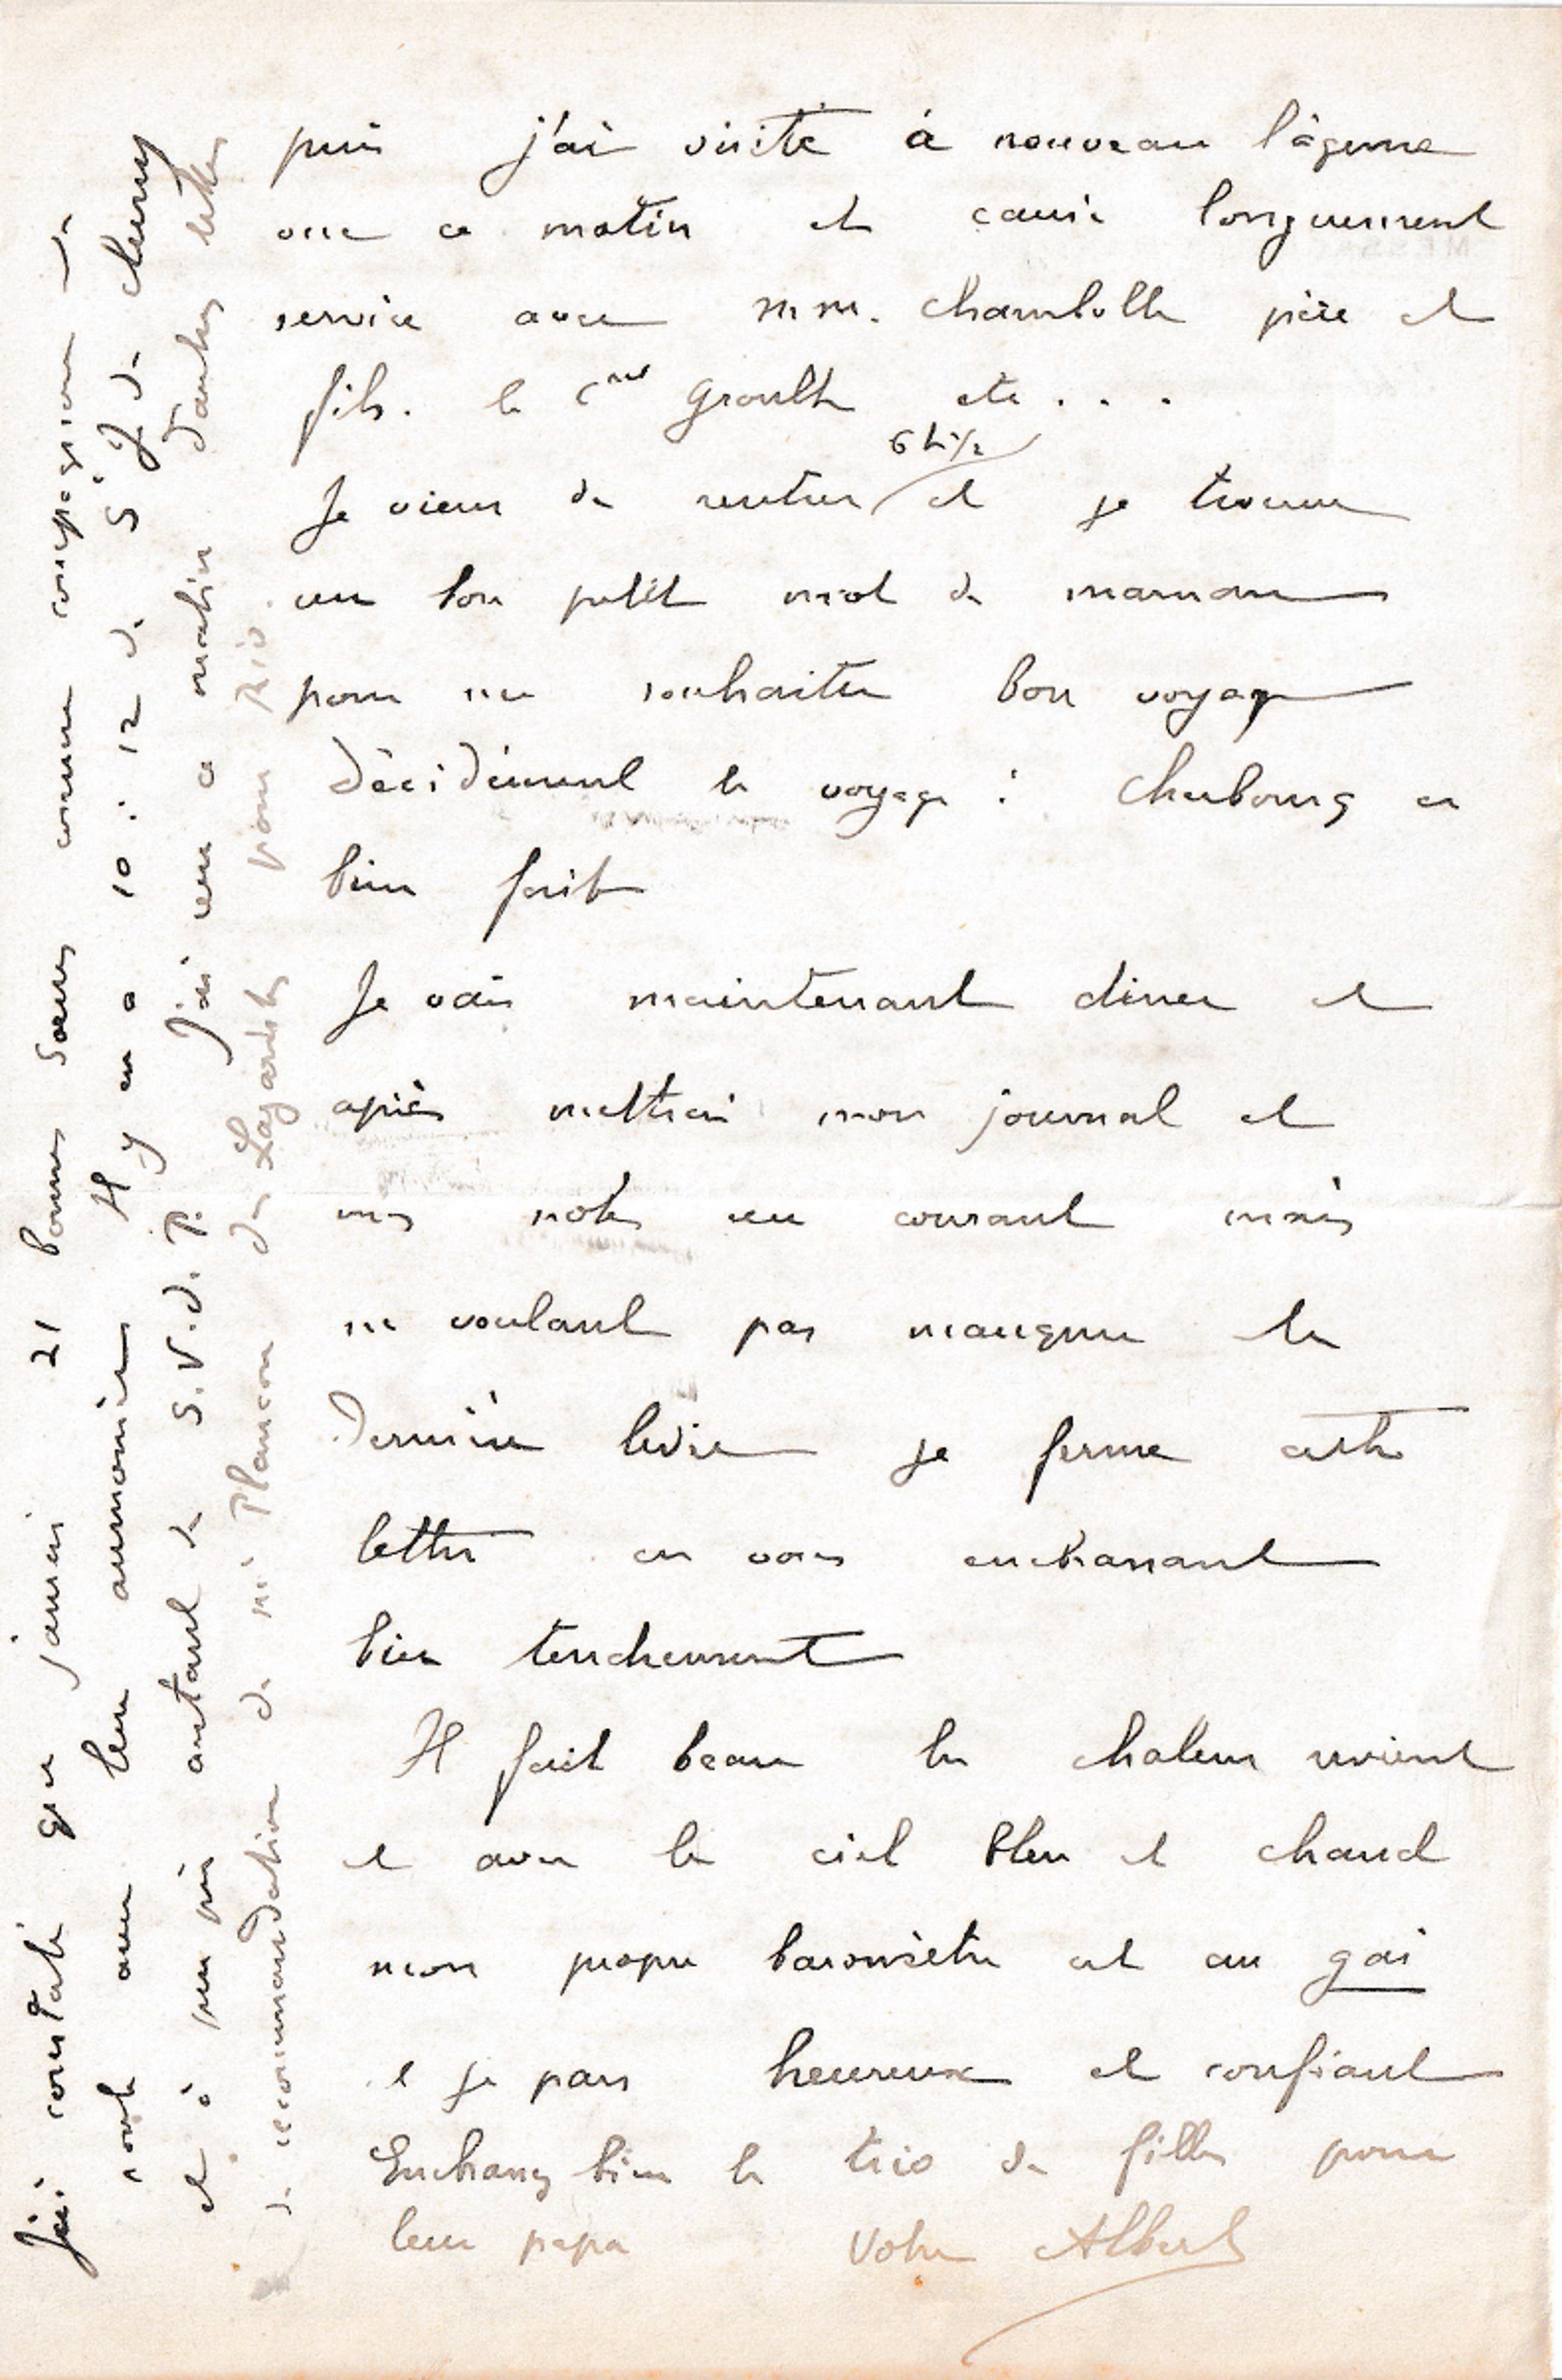 puis j'ai visité à nouveau l'agence
vue ce matin et causé longuement
service avec M.M. Chambolle père et
fils. le Cnel Groult etc...
Je viens de rentrer 6h½ et je trouve
un bon petit mot de maman
pour me souhaiter bon voyage
Décidément le voyage : Cherbourg a
bien fait
Je vais maintenant diner et
après mettrai mon journal et
mes notes au courant mais
ne voulant pas manquer la
dernière levée je ferme cette
lettre en vous embrassant
bien tendrement
Il fait beau la chaleur revient
et avec le ciel bleu et chaud
mon propre baromètre est au gai
et je pars heureux et confiant
Embrassez bien le trio de filles pour
leur papa Votre Albert
J'ai constaté que j'aurai 21 bonnes Soeurs comme compagnons de
route avec leur aumonier Il y en a 10 : 12 de S J de Cluny
et à peu près autant de S.V.d.P. J'ai eu ce matin d'autres lettres
de recommandation de Mr Plancon des Lazaristes pour Rio.